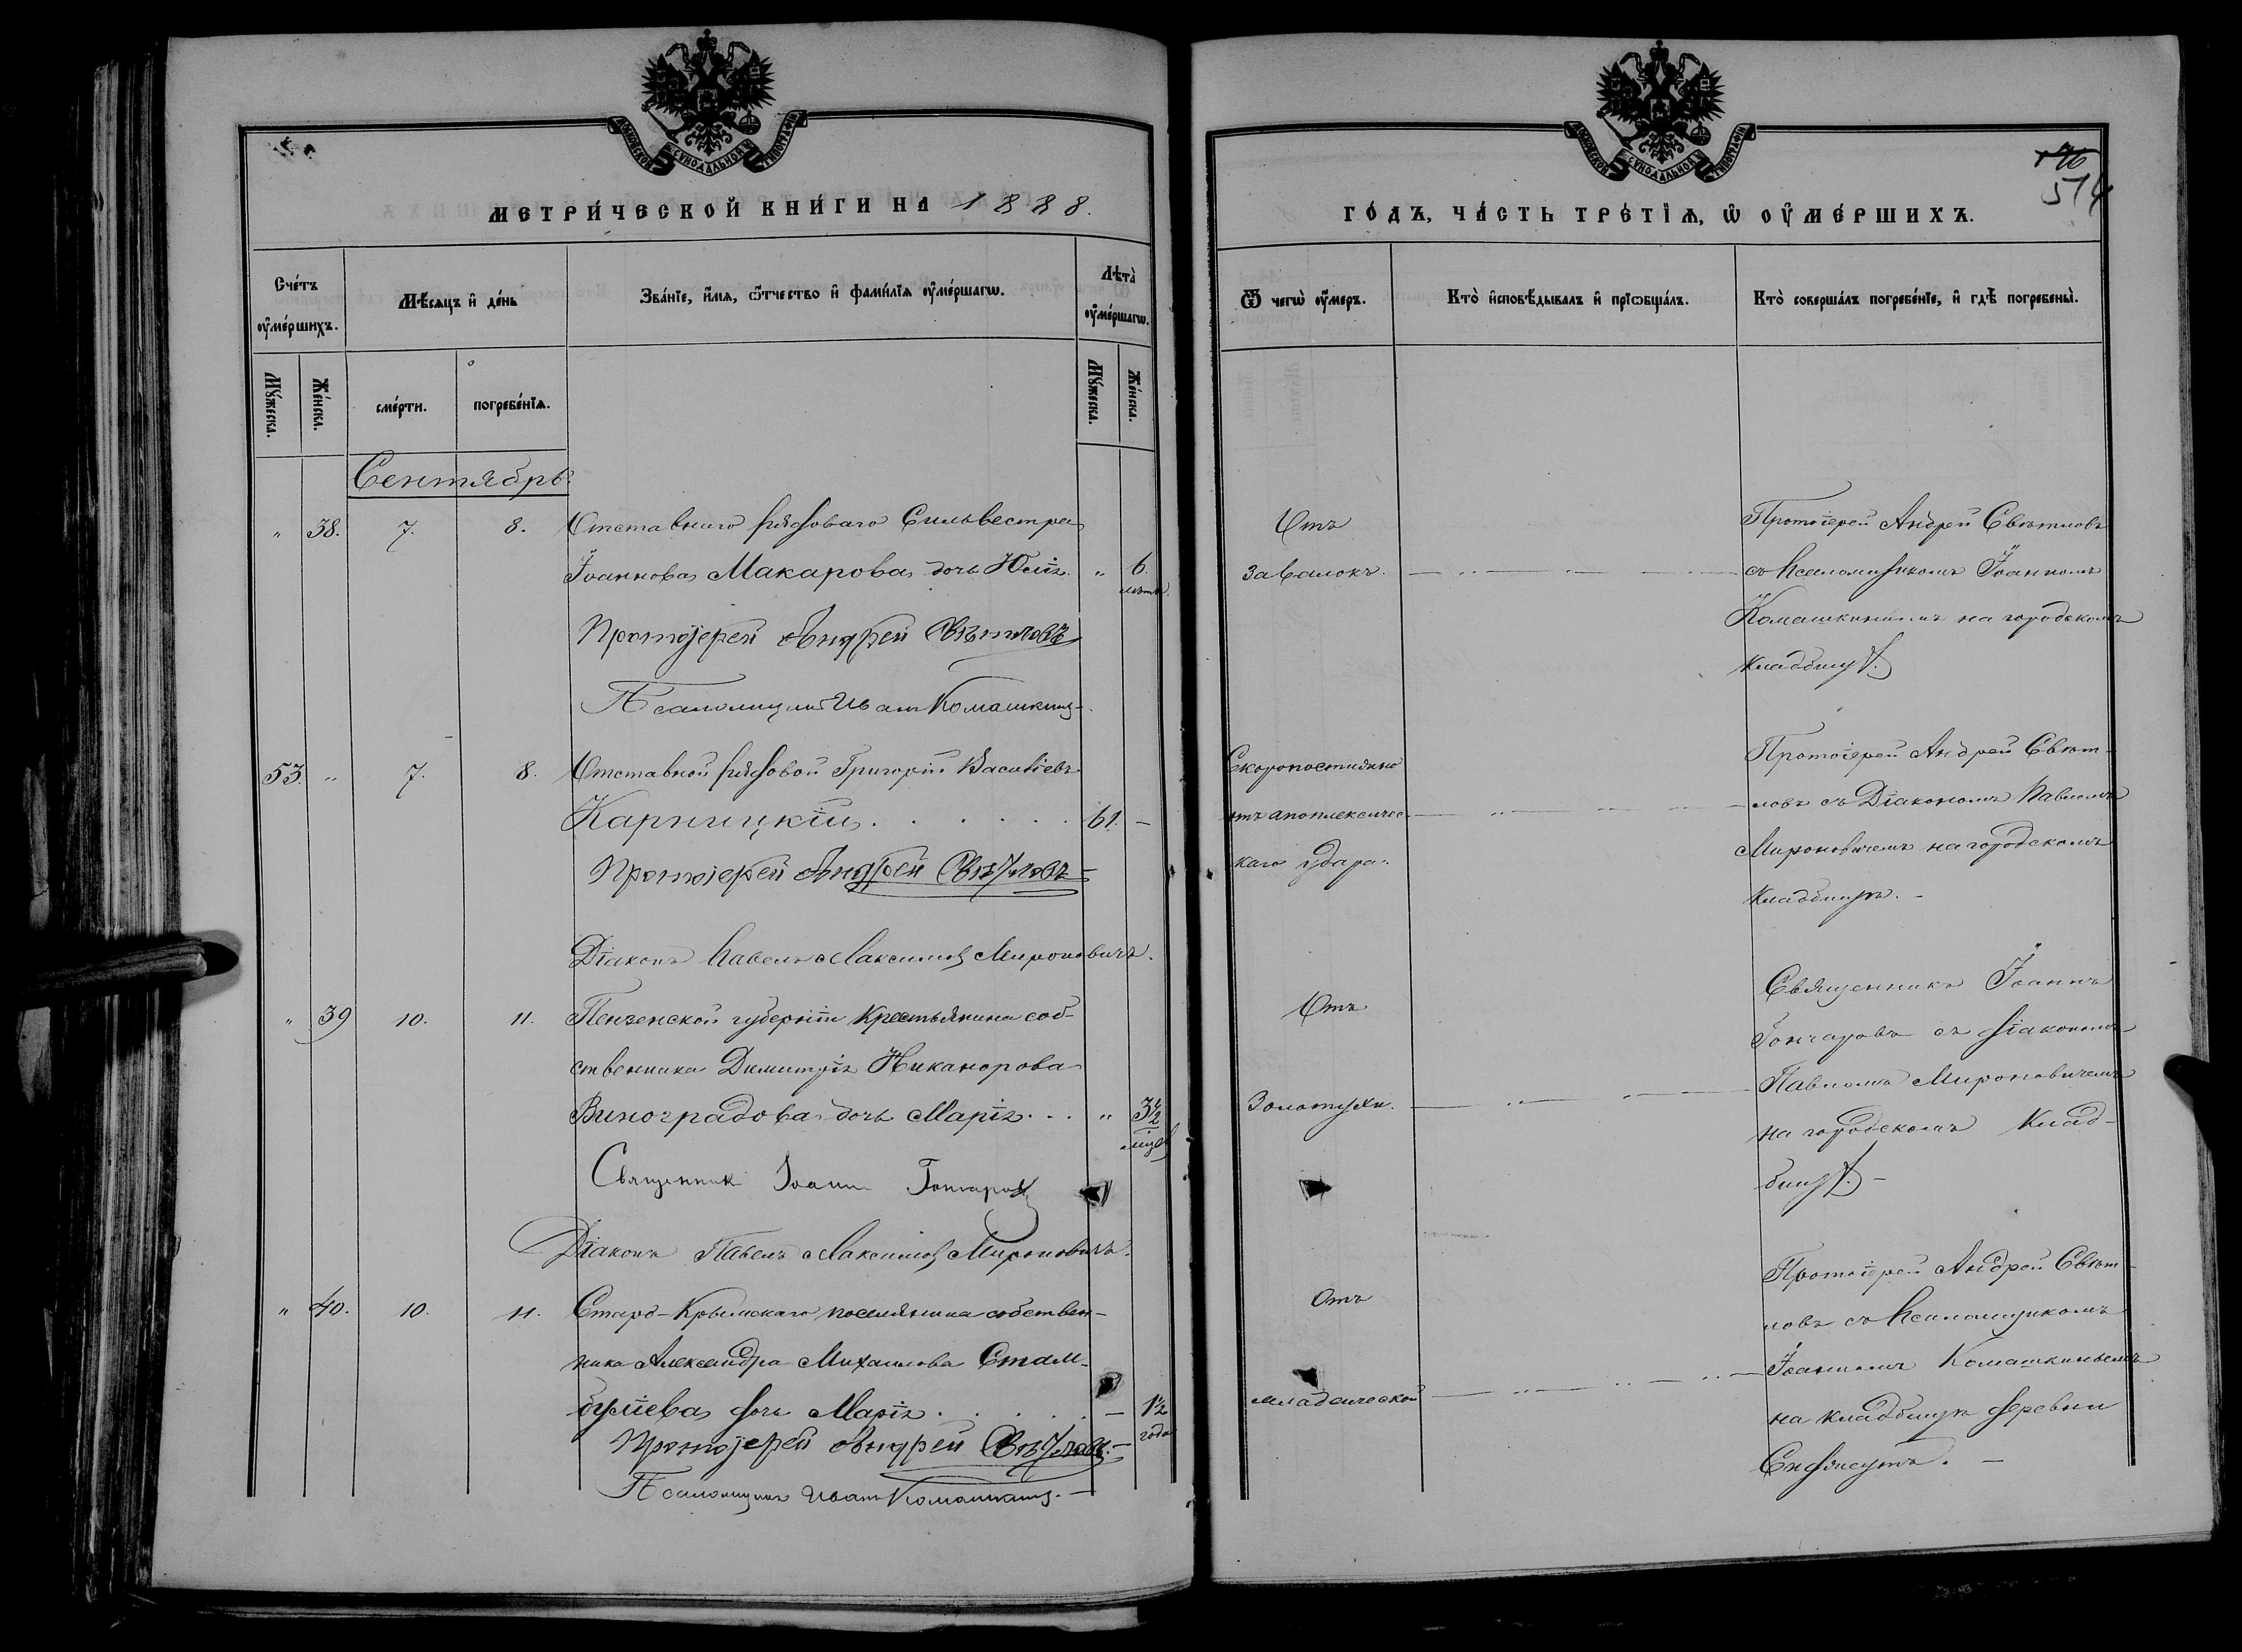 МОСКОВСКОЙ СУНОДАЛЬНОЙ ТИПОГРАФІИ
МЕТРИ́ЧЕСКОЙ КНИ́ГИ НА 1888.
Сче́тъ ᲂу҆ме́ршихъ.
Мѣ́сѧцъ и҆ де́нь
Зва́нїе, и҆́мѧ, ѻ҆́тчество и҆ фами́лїѧ ᲂу҆ме́ршагѡ.
Лѣта̀ ᲂу҆ме́ршагѡ.
Мꙋ́жеска.
Же́нска.
сме́рти.
погребе́нїѧ.
Мꙋ́жеска.
Же́нска.
Сентябрь.
" 38. 7. 8. Отставного рядоваго Сильвестра
Іоаннова Макарова дочь Юлія. " 6.
лѣтъ.
Протоіерей Андрей Свѣтловъ
Псаломщикъ Иванъ Комашкинъ
53. " 7. 8. Отставной рядовой Григорій Василіевъ
Карницкій . . . . . . 61. —
Протоіерей Андрей Свѣтловъ
Діаконъ Павелъ Максимов Мироновичъ.
" 39 10. 11. Пензенской губерніи крестьянина соб-
ственника Димитрія Никанорова
Виноградова дочь Марія . . . " 3½
мцев
Священник Іоанн Гончаров
Діаконъ Павелъ Максимов Мироновичъ.
" 40. 10. 11. Старо-Крымскаго поселянина собствен-
ника Александра Михаилова Стам-
буліева дочь Марія . . . . . — 1½
года
Протоіерей Андрей Свѣтловъ.
Псаломщикъ Иванъ Комашкинъ. —
МОСКОВСКОЙ СУНОДАЛЬНОЙ ТИПОГРАФІИ
514
ГО́ДЪ, ЧА́СТЬ ТРЕ́ТІѦ, Ѡ҆ ОУ҆МЕ́РШИХЪ.
Ѿ чегѡ̀ ᲂу҆́меръ.
Кто̀ и҆сповѣ́дывалъ и҆ прїѡбща́лъ.
Кто̀ соверша́лъ погребе́нїе, и҆ гдѣ̀ погребены̀.
Отъ
завалокъ.
Протоіерей Андрей Свѣтловъ
съ Псаломщикомъ Іоанномъ
Комашкинымъ на городскомъ
кладбищѣ.
Скоропостижно
отъ апоплексичес-
каго удара.
Протоіерей Андрей Свѣт-
ловъ съ Діакономъ Павломъ
Мироновичемъ на городскомъ
кладбищѣ. —
Отъ
Золотухи.
Священникъ Іоаннъ
Гончаровъ съ діакономъ
Павломъ Мироновичемъ
на городскомъ клад-
бищѣ. —
Отъ
младенческой
Протоіерей Андрей Свѣт-
ловъ съ Псаломщикомъ
Іоанномъ Комашкинымъ
на кладбищѣ деревни